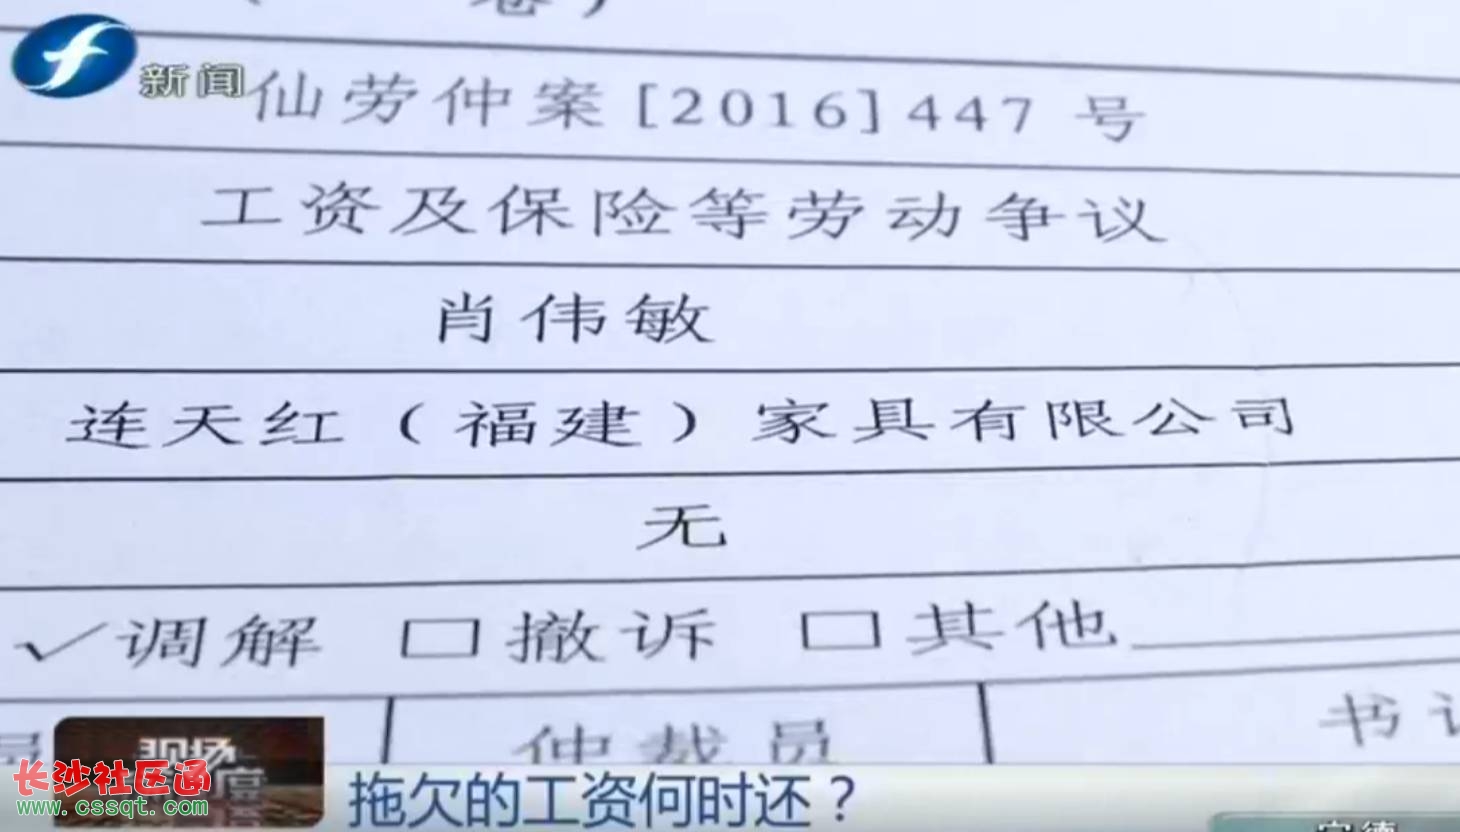 新闻
仙劳仲案[2016]447 号
工资及保险等劳动争议
肖伟敏
连天红（福建）家具有限公司
无
✓调解 □撤诉 □其他
仲裁员 书
现场
长沙社区通
www.cssqt.com
拖欠的工资何时还？